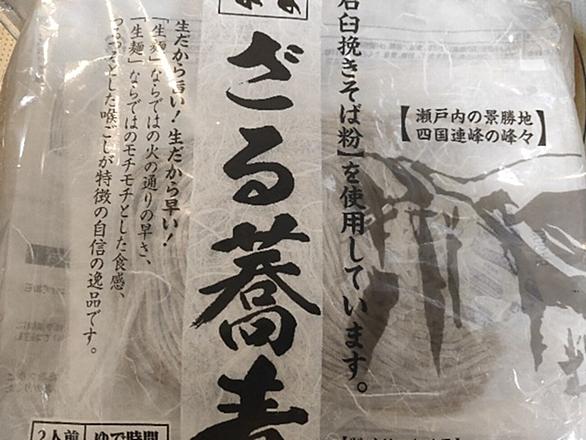 石臼挽きそば粉】を使用しています。
【瀬戸内の景勝地
四国連峰の峰々】
ざる蕎麦
生だから旨い!生だから早い!
「生麺」ならではの火の通りの早さ、
「生麺」ならではのモチモチとした食感、
つるっとした喉ごしが特徴の自信の逸品です。
2人前
ゆで時間